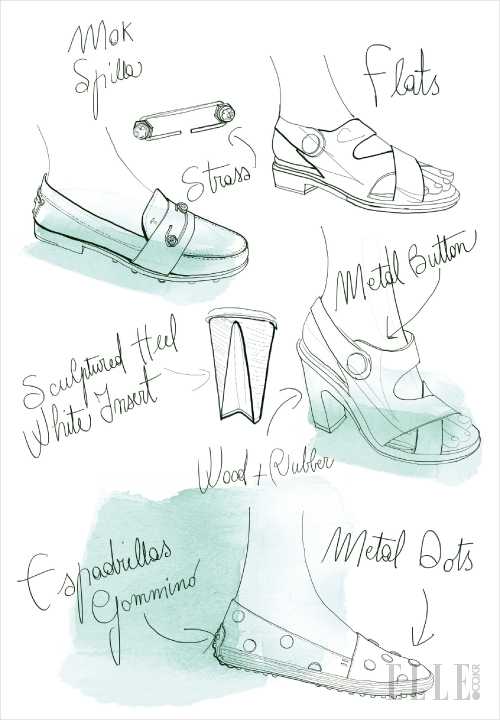 Mok
Spilla
Flats
Strass
Metal Button
Sculptured Heel
White Insert
Wood + Rubber
Espadrillas
Gommino
Metal Dots
ELLE.CO.KR